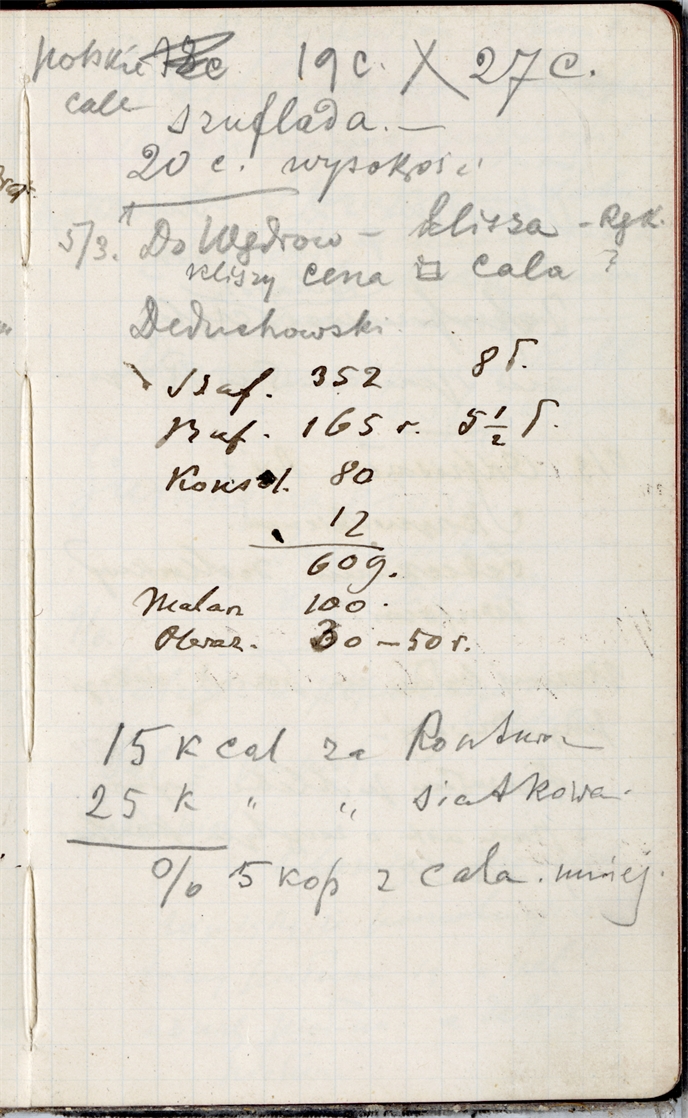 polskie 19 c. X 27 c.
cale
szuflada. —
20 c. wysokości
5/3. Do Wędrow — klisza —
kliszy cena □ cala ?
Deduchowski
Szaf. 352 8 г.
165 r. 5 1/2 г.
Konsol. 80
12
609.
100.
Obraz. 30 — 50 r.
15 k cal za Konturow
25 k " " siatkowa.
% 5 kop z cala. mniej.